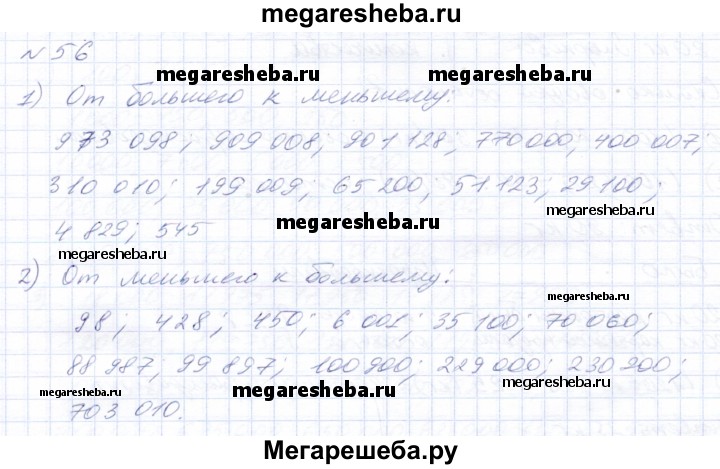 megaresheba.ru
№ 56
megaresheba.ru megaresheba.ru
1) От большего к меньшему:
973 098; 909 008; 901 128; 770 000; 400 007;
310 010; 199 009; 65 200; 51 123; 29 100;
megaresheba.ru
4 829; 545
megaresheba.ru
megaresheba.ru
2) От меньшего к большему:
megaresheba.ru
98; 428; 450; 6 001; 35 100; 70 060;
88 987; 99 897; 100 900; 229 000; 230 200;
megaresheba.ru megaresheba.ru megaresheba.ru
703 010.
Мегарешеба.ру